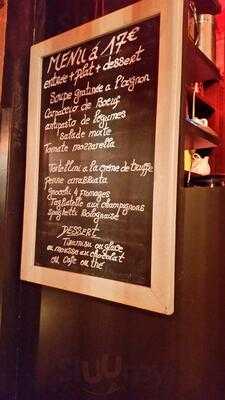 MENU à 17€
entrée + plat + dessert
Soupe gratinée a l'oignon
Carpaccio de Boeuf
antipasto de légumes
Salade mixte
Tomate mozzarella
Tortellini a la crème de truffe
Penne arrabbiata
Gnocchi 4 fromages
Tagliatelle aux champignons
Spaghetti Bolognaise
DESSERT
Tiramisu ou glace
ou mousse au chocolat
ou Café ou thé